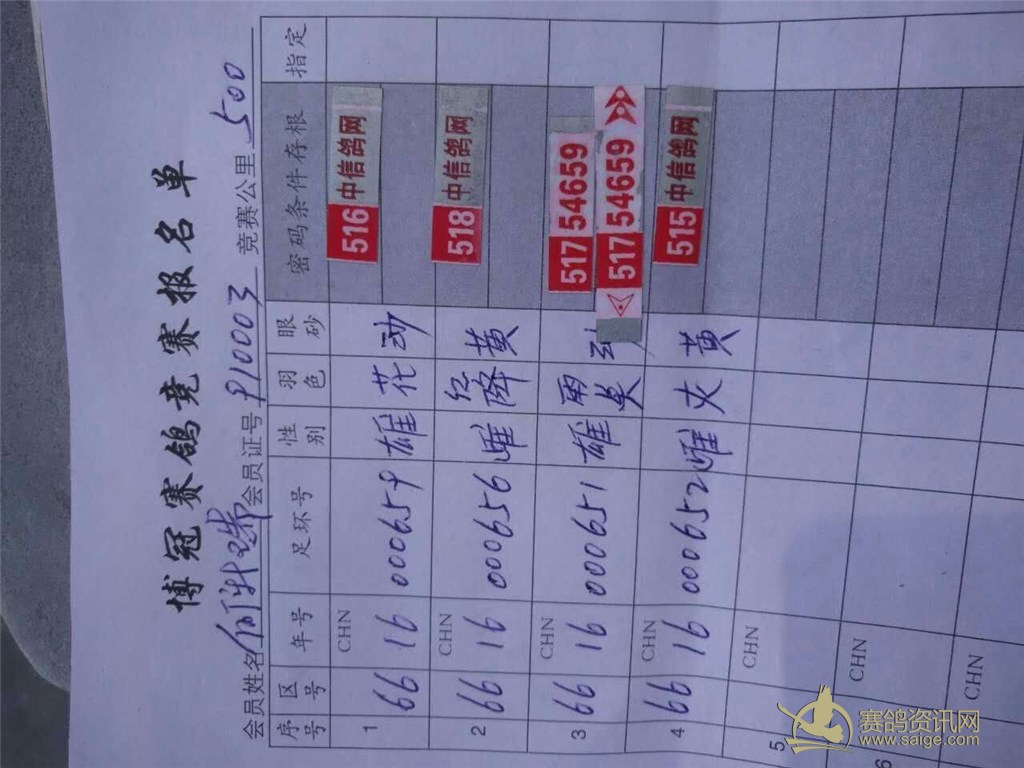 博冠赛鸽竞赛报名单
会员姓名 会员证号 P10003 竞赛公里 500
序号 区号 年号 足环号 性别 羽色 眼砂 密码条件存根 指定
1 66 CHN 16 000659 雄 花 砂 516 中信鸽网
2 66 CHN 16 000656 雌 红降 黄 518 中信鸽网
3 66 CHN 16 000651 雄 雨 517 54659 517 54659
4 66 CHN 16 000652 雌 灰 黄 515 中信鸽网
5 CHN
6 CHN
CHN
赛鸽资讯网
www.saige.com